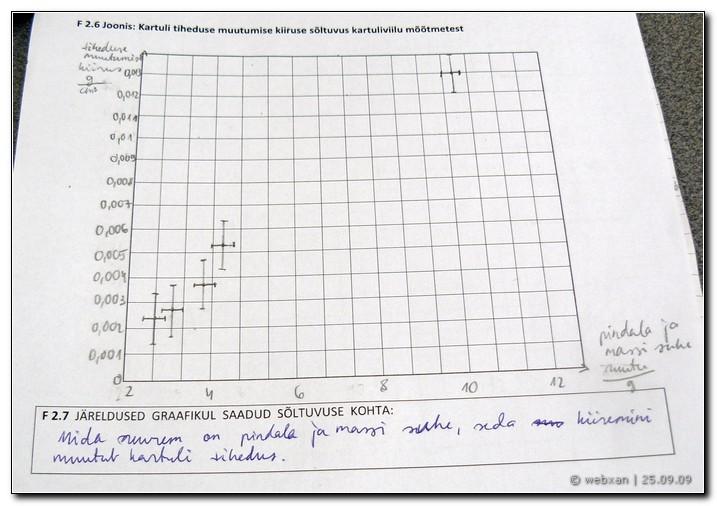 F 2.6 Joonis: Kartuli tiheduse muutumise kiiruse sõltuvus kartuliviilu mõõtmetest
tiheduse
muutumise
kiirus
g
cm³
0,013
0,012
0,011
0,01
0,009
0,008
0,007
0,006
0,005
0,004
0,003
0,002
0,001
0
2 4 6 8 10 12
pindala ja
massi suhe
g
F 2.7 JÄRELDUSED GRAAFIKUL SAADUD SÕLTUVUSE KOHTA:
Mida suurem on pindala ja massi suhe, seda kiiremini
muutub kartuli tihedus.
© webxan | 25.09.09